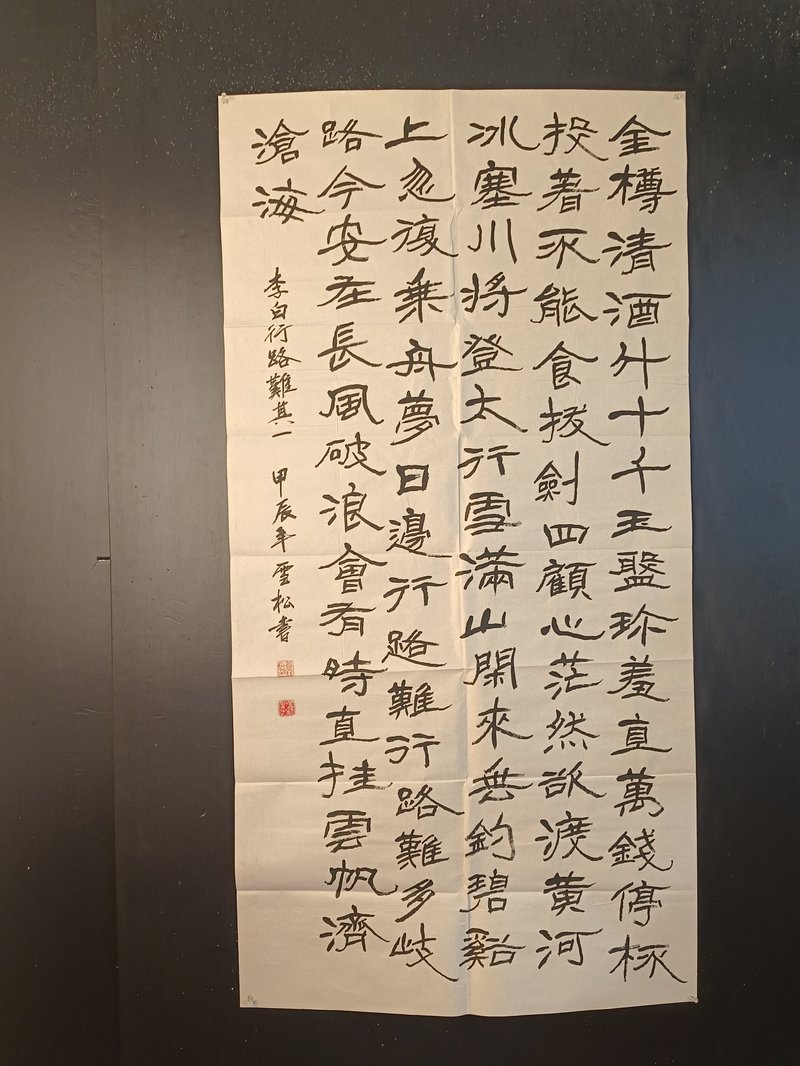 金樽清酒斗十千玉盤珍羞直萬錢停杯
投著不能食拔劍四顧心茫然欲渡黃河
冰塞川將登太行雪滿山閑來垂釣碧谿
上忽復乘舟夢日邊行路難行路難多岐
路今安在長風破浪會有時直挂雲帆濟
滄海
李白行路難其一 甲辰年雲松書